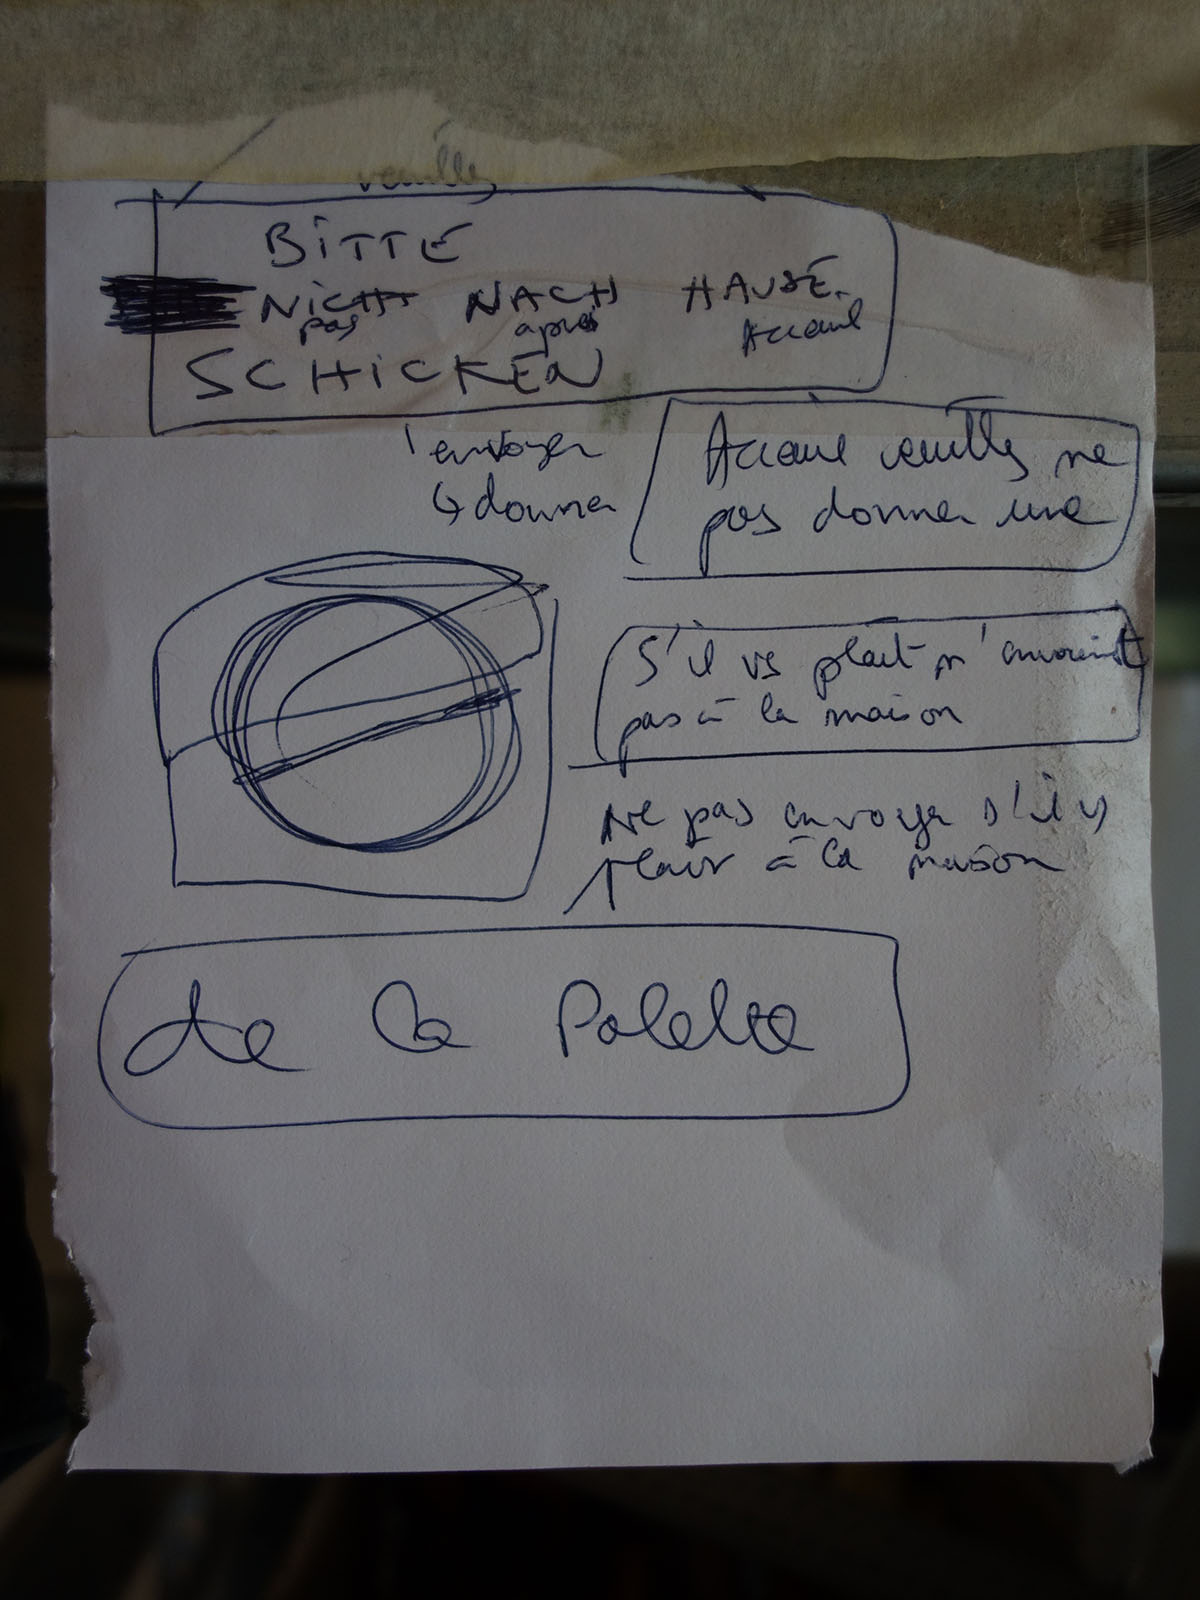 veuillez
BiTTE
NiCHT NACH HAUSE.
pas après Accaul
SCHiCKEN
envoyer
↳ donner
Accaul veuillez ne
pas donner une
S'il vs plait n'envoient
pas à la maison
Ne pas envoyer s'il vs
plait à la maison
de la Palette